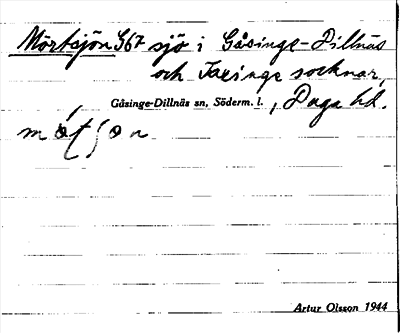 Mörtsjön 367 sjö i Gåsinge-Dillnäs
och Taxinge socknar,
Gåsinge-Dillnäs sn, Söderm. l., Daga hd.
Artur Olsson 1944